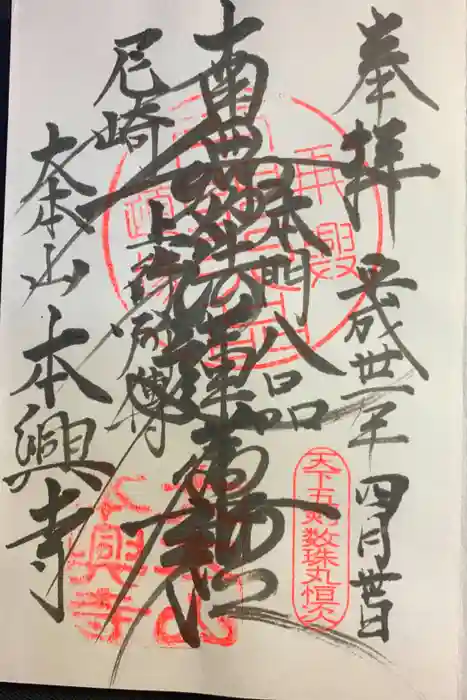 奉拝 平成卅一年四月廿日
本門八品
南無妙法蓮華経
上行所傳
尼崎
大本山本興寺
天下五剣数珠丸恒次